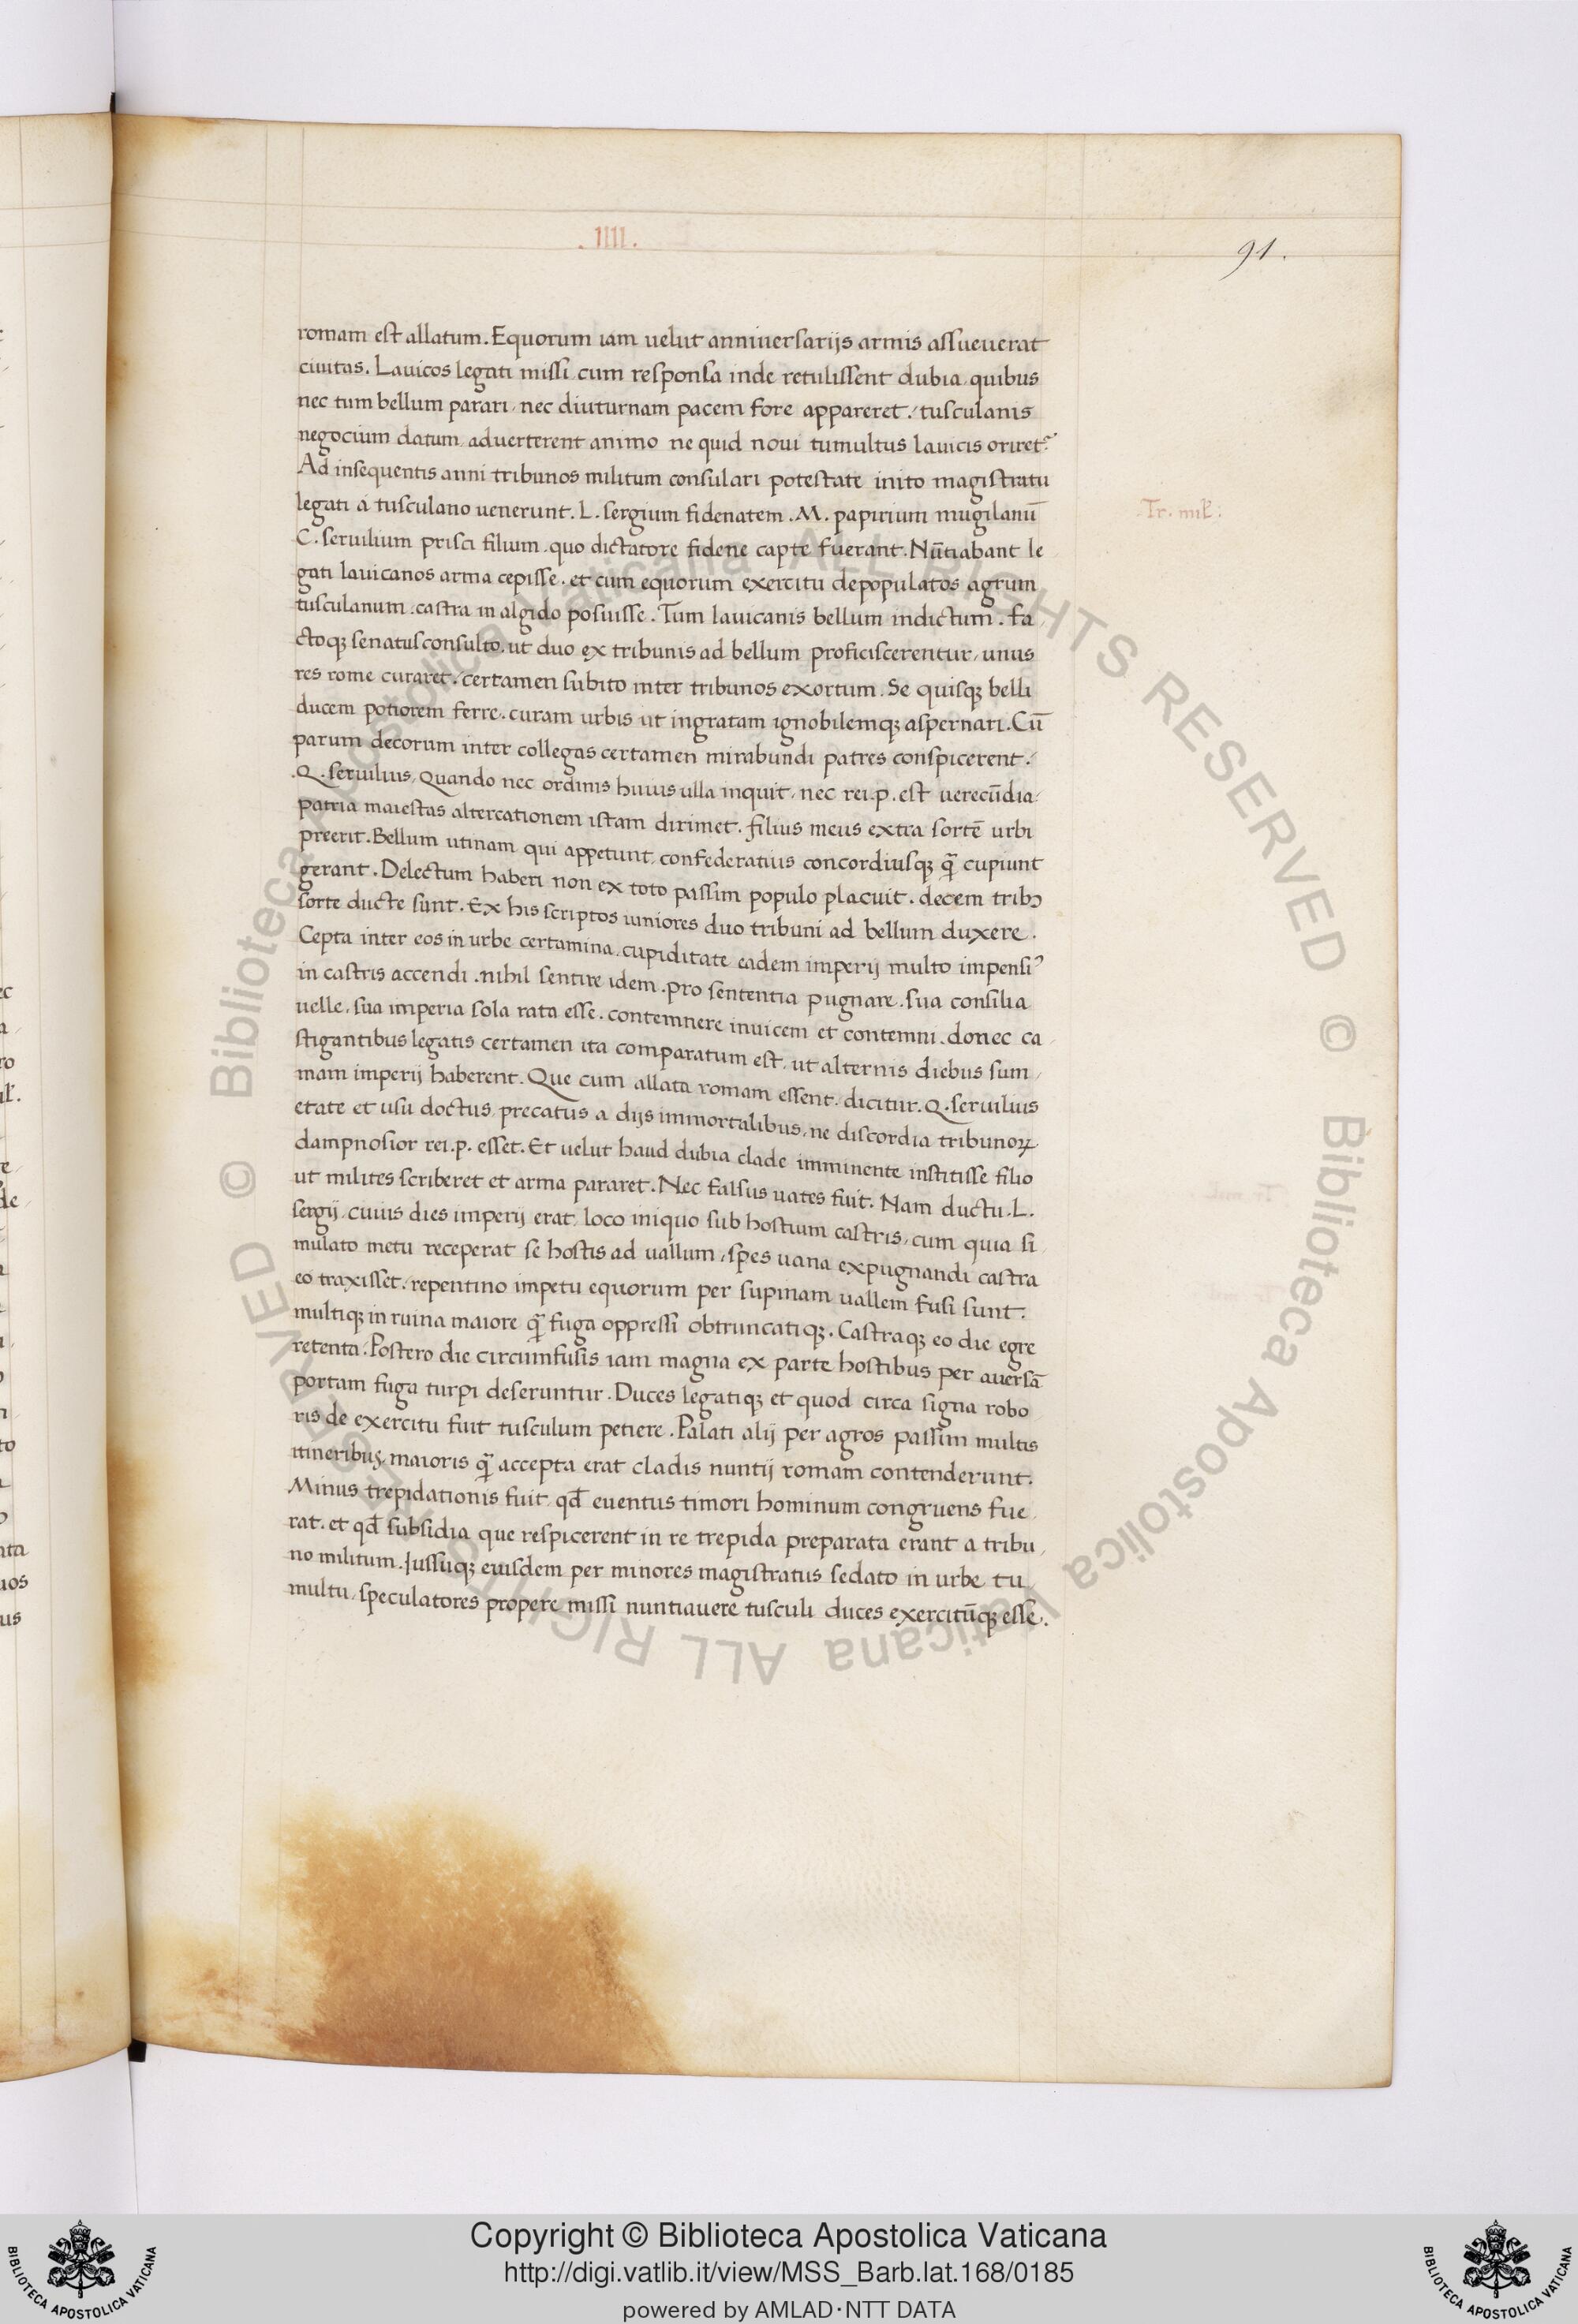 .IIII.
91.
romam est allatum. Equorum iam uelut anniuersarijs armis assueuerat
ciuitas. Lauicos legati missi cum responsa inde retulissent dubia, quibus
nec tum bellum parari, nec diuturnam pacem fore appareret: tusculanis
negocium datum, aduerterent animo ne quid noui tumultus lauicis oriret᷑.
Ad insequentis anni tribunos militum consulari potestate inito magistratu
legati a tusculano uenerunt. L. sergium fidenatem. M. papirium mugilanū
Tr. mil̄:
C. seruilium prisci filium. quo dictatore fidene capte fuerant. Nūtiabant le
gati lauicanos arma cepisse. et cum equorum exercitu depopulatos agrum
tusculanum. castra in algido posuisse. Tum lauicanis bellum indictum. fa
ctoqꝫ senatusconsulto. ut duo ex tribunis ad bellum proficiscerentur, unus
res rome curaret: certamen subito inter tribunos exortum. Se quisqꝫ belli
ducem potiorem ferre. curam urbis ut ingratam ignobilemqꝫ aspernari. Cū
parum decorum inter collegas certamen mirabundi patres conspicerent:
.Q. seruilius, Quando nec ordinis huius ulla inquit, nec rei.p. est uerecūdia:
patria maiestas altercationem istam dirimet. filius meus extra sortē urbi
preerit. Bellum utinam, qui appetunt, confederatius concordiusqꝫ q̄ cupiunt
gerant. Delectum haberi non ex toto passim populo placuit. decem tribꝫ
sorte ducte sunt. Ex his scriptos iuniores duo tribuni ad bellum duxere.
Cepta inter eos in urbe certamina, cupiditate eadem imperij multo impensiꝰ
in castris accendi. nihil sentire idem. pro sententia pugnare. sua consilia
uelle, sua imperia sola rata esse. contemnere inuicem et contemni. donec ca
stigantibus legatis certamen ita comparatum est, ut alternis diebus sum
mam imperij haberent. Que cum allata romam essent, dicitur. Q. seruilius
etate et usu doctus, precatus a dijs immortalibus, ne discordia tribunoꝝ
dampnosior rei.p. esset. Et uelut haud dubia clade imminente institisse filio
ut milites scriberet et arma pararet. Nec falsus uates fuit. Nam ductu. L.
sergij, cuius dies imperij erat, loco iniquo sub hostium castris, cum quia si
mulato metu receperat se hostis ad uallum, spes uana expugnandi castra
eo traxisset: repentino impetu equorum per supinam uallem fusi sunt:
multiqꝫ in ruina maiore q̄ fuga oppressi obtruncatiqꝫ. Castraqꝫ eo die egre
retenta. Postero die circumfusis iam magna ex parte hostibus per auersā
portam fuga turpi deseruntur. Duces legatiqꝫ et quod circa signa robo
ris de exercitu fuit tusculum petiere. Palati alij per agros passim multis
itineribuꝫ, maioris q̄ accepta erat cladis nuntij romam contenderunt.
Minus trepidationis fuit, qđ euentus timori hominum congruens fue
rat. et qđ subsidia que respicerent in re trepida preparata erant a tribu
no militum. Iussuqꝫ eiusdem per minores magistratus sedato in urbe tu
multu, speculatores propere missi nuntiauere tusculi duces exercitūqꝫ esse.
Copyright © Biblioteca Apostolica Vaticana
http://digi.vatlib.it/view/MSS_Barb.lat.168/0185
powered by AMLAD·NTT DATA